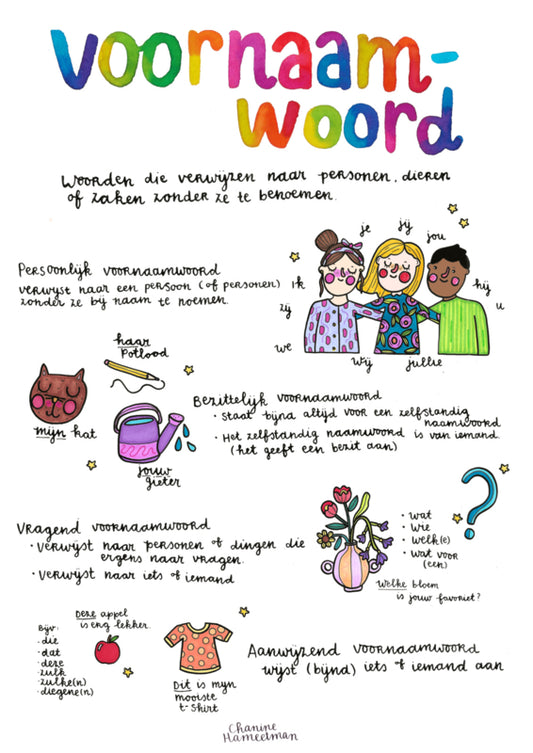 Voornaam-
woord
Woorden die verwijzen naar personen, dieren
of zaken zonder ze te benoemen.
je jij jou
Persoonlijk voornaamwoord
verwijst naar een persoon (of personen)
zonder ze bij naam te noemen.
ik
hij
zij
u
we
wij jullie
haar
Potlood
mijn kat
jouw
gieter
Bezittelijk voornaamwoord
• Staat bijna altijd voor een zelfstandig
naamwoord
• Het zelfstandig naamwoord is van iemand.
(het geeft een bezit aan)
Vragend voornaamwoord
• Verwijst naar personen of dingen die
ergens naar vragen.
• Verwijst naar iets of iemand
• wat
• wie
• welk(e)
• wat voor
(een)
Welke bloem
is jouw favoriet?
Deze appel
is erg lekker.
Bijv:
• die
• dat
• deze
• zulk
• zulke(n)
• diegene(n)
Dit is mijn
mooiste
t-shirt
Aanwijzend voornaamwoord
wijst (bijna) iets of iemand aan
Chanine
Hameetman